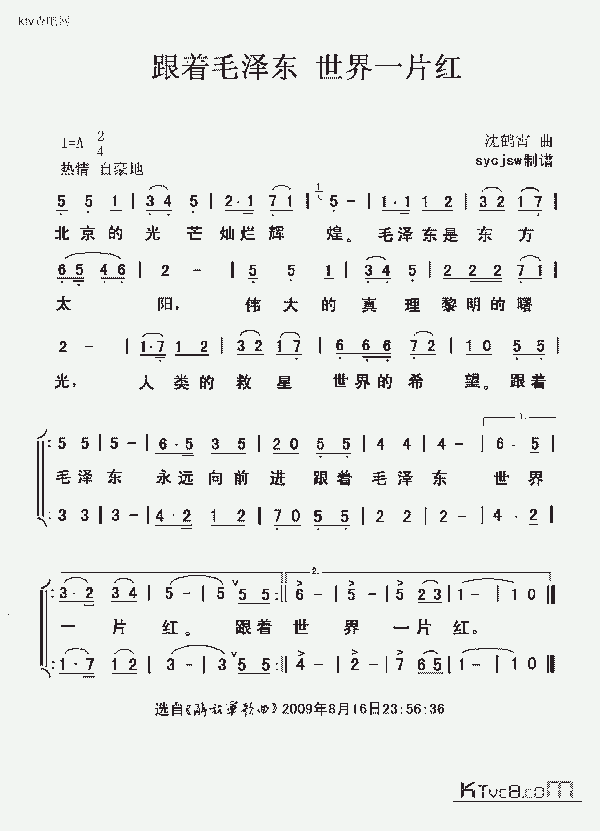 ktv
跟着毛泽东 世界一片红
1=A 2/4
沈鹤霄 曲
热情 自豪地
sycjsw制谱
5 5 1 | 3 4 5 | 2·1 7 1 | 5 - | 1·1 1 2 | 3 2 1 7 |
北京的光芒灿烂辉煌。毛泽东是东方
6 5 4 6 | 2 - | 5 5 1 | 3 4 5 | 2 2 2 7 1 |
太阳，伟大的真理黎明的曙
2 - | 1·7 1 2 | 3 2 1 7 | 6 6 6 7 2 | 1 0 5 5 |
光，人类的救星世界的希望。跟着
1.
5 5 | 5 - | 6·5 3 5 | 2 0 5 5 | 4 4 | 4 - | 6· 5 |
毛泽东 永远向前进跟着毛泽东 世界
3 3 | 3 - | 4·2 1 2 | 7 0 5 5 | 2 2 | 2 - | 4· 2 |
2.
3·2 3 4 | 5 - | 5 5 5 :|| 6 - | 5 - | 5 2 3 | 1 - | 1 0 ||
一片红。跟着世界一片红。
1·7 1 2 | 3 - | 3 5 5 :|| 4 - | 2 - | 7 6 5 | 1 - | 1 0 ||
选自《解放军歌曲》2009年8月16日23:56:36
KTvc8.com